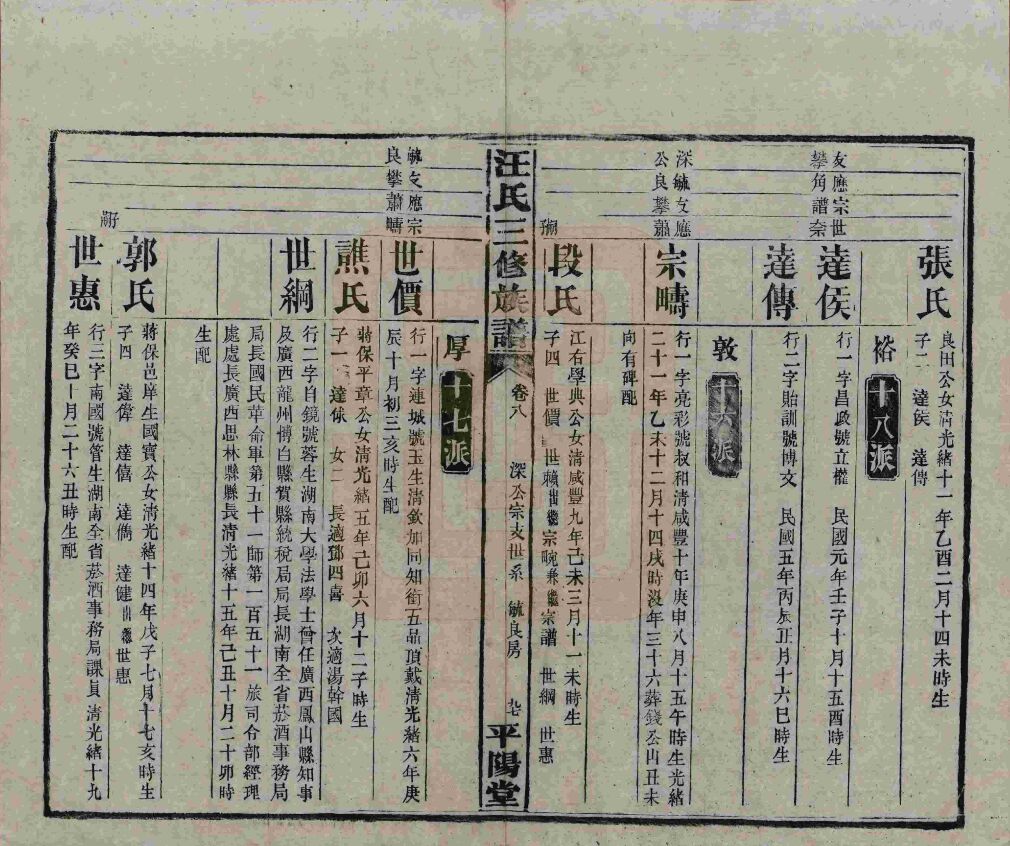 張氏
良田公女清光緒十一年乙酉二月十四未時生
子二 達侯 達傳
裕 十八派
友應宗世
攀角譜奈
達侯
行一字昌政號立權 民國元年壬子十月十五酉時生
達傳
行二字貽訓號博文 民國五年丙辰正月十六巳時生
敦 十六派
深毓友應
公良攀蕭
宗疇
行一字亮彩號叔和清咸豐十年庚申八月十五午時生光緒
二十一年乙未十二月十四戌時沒年三十六葬錢公山丑未
向有碑配
段氏
江右學典公女清咸豐九年己未三月十一未時生
子四 世價 世賴出繼宗畹兼繼宗譜 世綱 世惠
汪氏三修族譜
卷八 深公宗支世系 毓良房
平陽堂
厚 十七派
毓友應宗
良攀蕭疇
世價
行一字連城號玉生清欽加同知銜五品頂戴清光緒六年庚
辰十月初三亥時生配
譙氏
蔣保平章公女清光緒五年己卯六月十二子時生
子一 達俅 女二 長適鄧四喜 次適湯幹國
世綱
行二字自鏡號蓉生湖南大學法學士曾任廣西鳳山縣知事
及廣西龍州博白縣賀縣統稅局局長湖南全省菸酒事務局
局長國民革命軍第五十一師第一百五十一旅司令部經理
處處長廣西思林縣縣長清光緒十五年己丑十月二十卯時
生配
郭氏
蔣保邑庠生國寶公女清光緒十四年戊子七月十七亥時生
子四 達偉 達僖 達儁 達健出繼世惠
世惠
行三字南國號管生湖南全省菸酒事務局課員清光緒十九
年癸巳十月二十六丑時生配